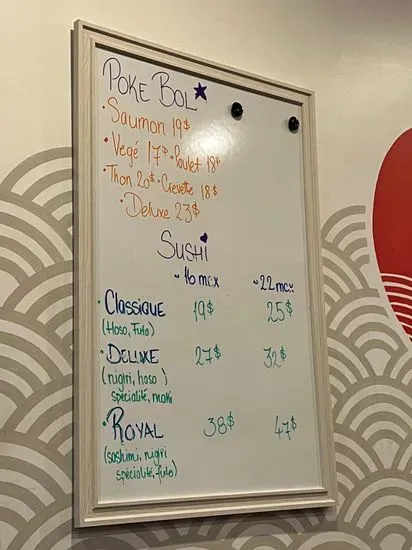 POKE BOL
• Saumon 19$
• Vegé 17$ • Poulet 18$
• Thon 20$ • Crevette 18$
• Deluxe 23$
SUSHI
~ 16 mcx ~ 22 mcx
• CLASSIQUE 19$ 25$
(Hoso, Futo)
• DELUXE 27$ 32$
(nigiri, hoso)
spécialité, maki
• ROYAL 38$ 47$
(sashimi, nigiri
spécialité, futo)